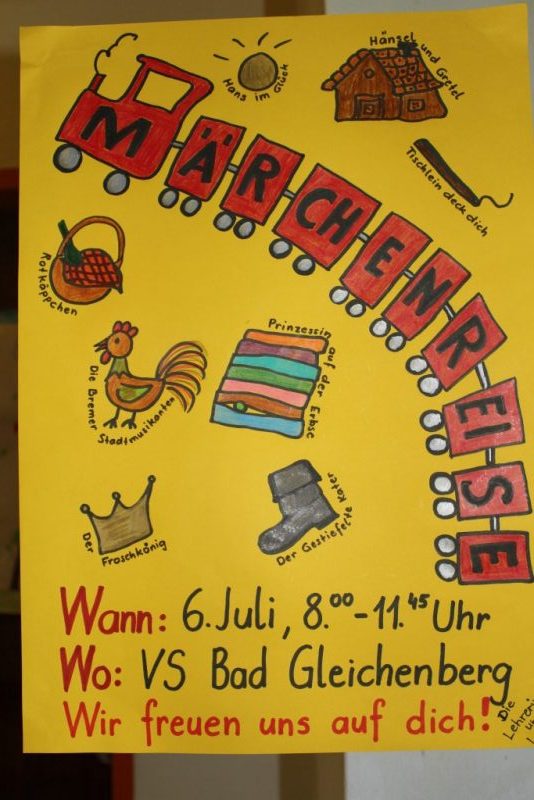 MÄRCHENREISE
Hans im Glück
Hänsel und Gretel
Tischlein deck dich
Rotkäppchen
Die Bremer
Stadtmusikanten
Prinzessin auf der Erbse
Der Froschkönig
Der Gestiefelte Kater
Wann: 6. Juli, 8.00-11.45 Uhr
Wo: VS Bad Gleichenberg
Wir freuen uns auf dich!
Die